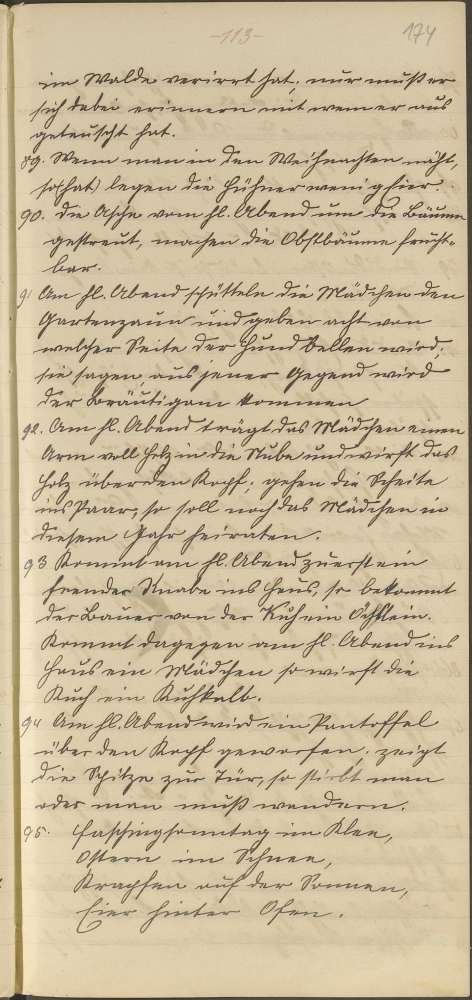 -113-
174
im Walde verirrt hat, nur muß er
sich dabei erinnern mit wem er aus
getauscht hat.
89. Wenn man in den Weihnachten näht,
so (hat) legen die Hühner wenig hier.
90. die Asche vom hl. Abend um die Bäume
gestreut, machen die Obstbäume frucht-
bar.
91 Am hl. Abend schütteln die Mädchen den
Gartenzaun und geben acht von
welcher Seite der Hund bellen wird,
sie sagen, aus jener Gegend wird
der Bräutigam kommen
92. Am hl. Abend trägt das Mädchen einen
Arm voll Holz in die Stube und wirft das
Holz über den Kopf; gehen die Scheite
ins Paar, so soll noch das Mädchen in
diesem Jahr heiraten.
93 Kommt am hl. Abend zuerst ein
fremder Knabe ins Haus, so bekommt
der Bauer von der Kuh ein Öchslein.
Kommt dagegen am hl. Abend ins
Haus ein Mädchen so wirft die
Kuh ein Kuhkalb.
94 Am hl. Abend wird ein Pantoffel
über den Kopf geworfen, zeigt
die Spitze zur Tür, so stirbt man
oder man muß wandern.
95. Faschingsonntag im Klee,
Ostern im Schnee,
Krapfen auf der Sonnen,
Eier hinter Ofen.